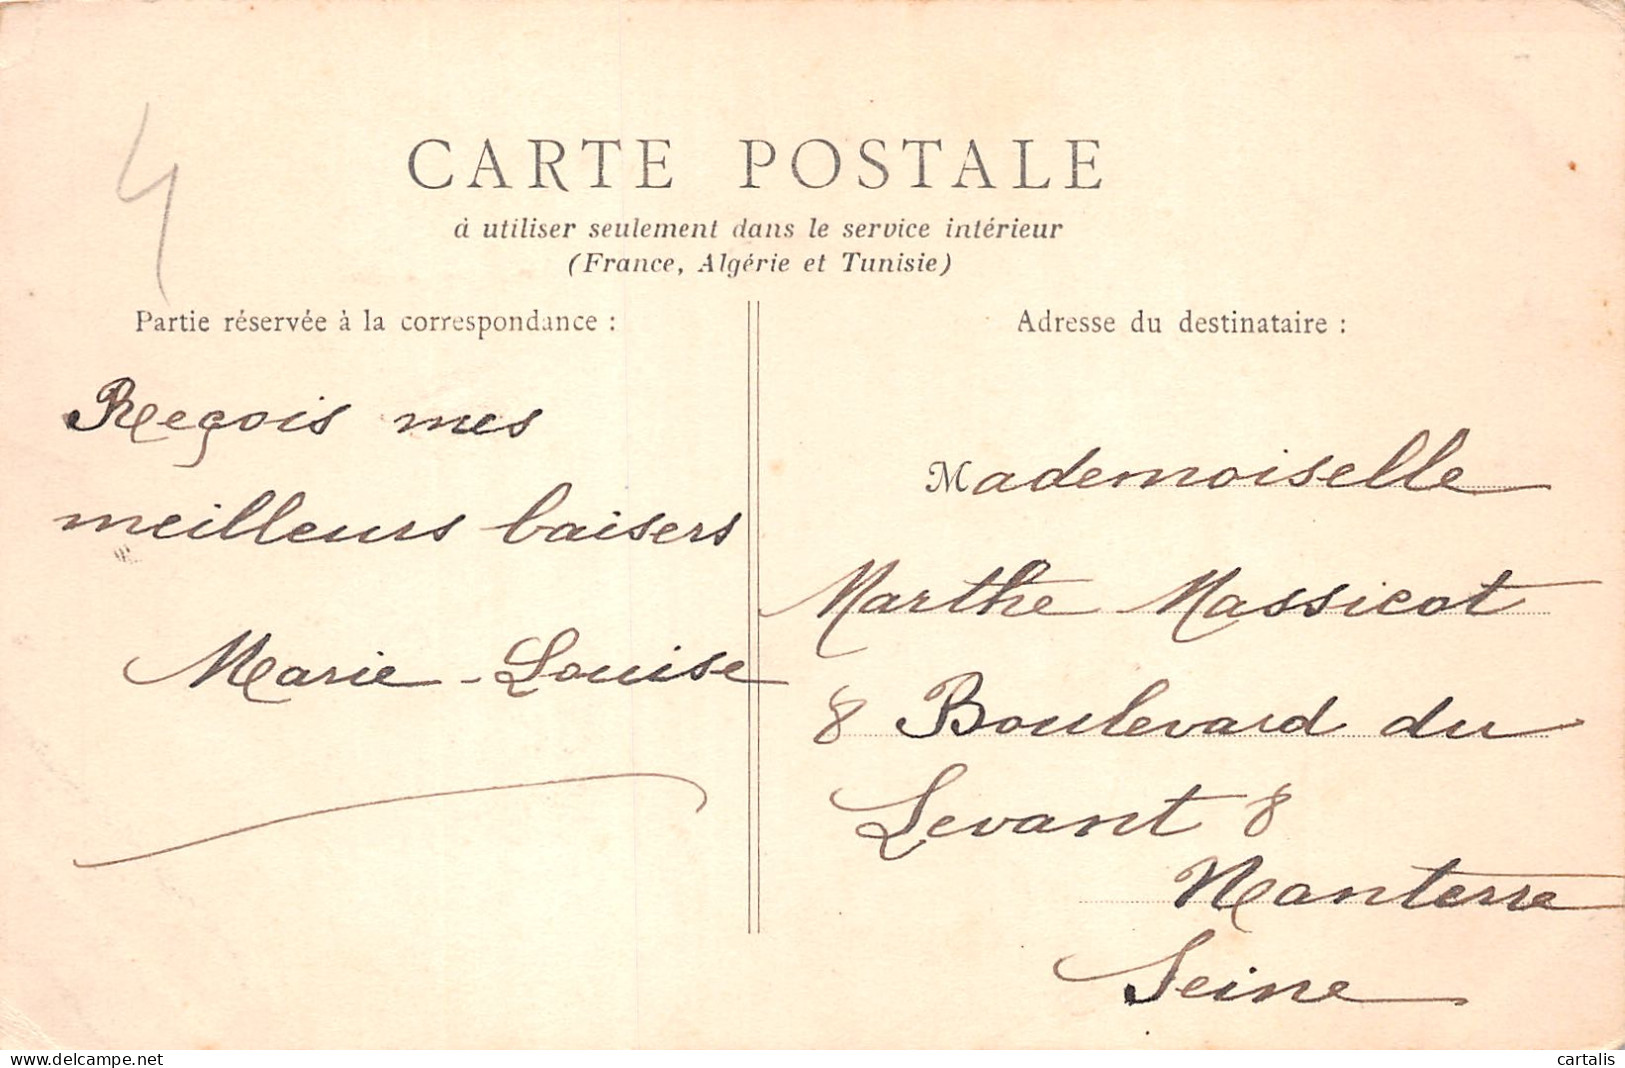 4
CARTE POSTALE
à utiliser seulement dans le service intérieur
(France, Algérie et Tunisie)
Partie réservée à la correspondance :
Reçois mes
meilleurs baisers
Marie-Louise
Adresse du destinataire :
Mademoiselle
Marthe Massicot
8 Boulevard du
Levant 8
Nanterre
Seine
www.delcampe.net
cartalis